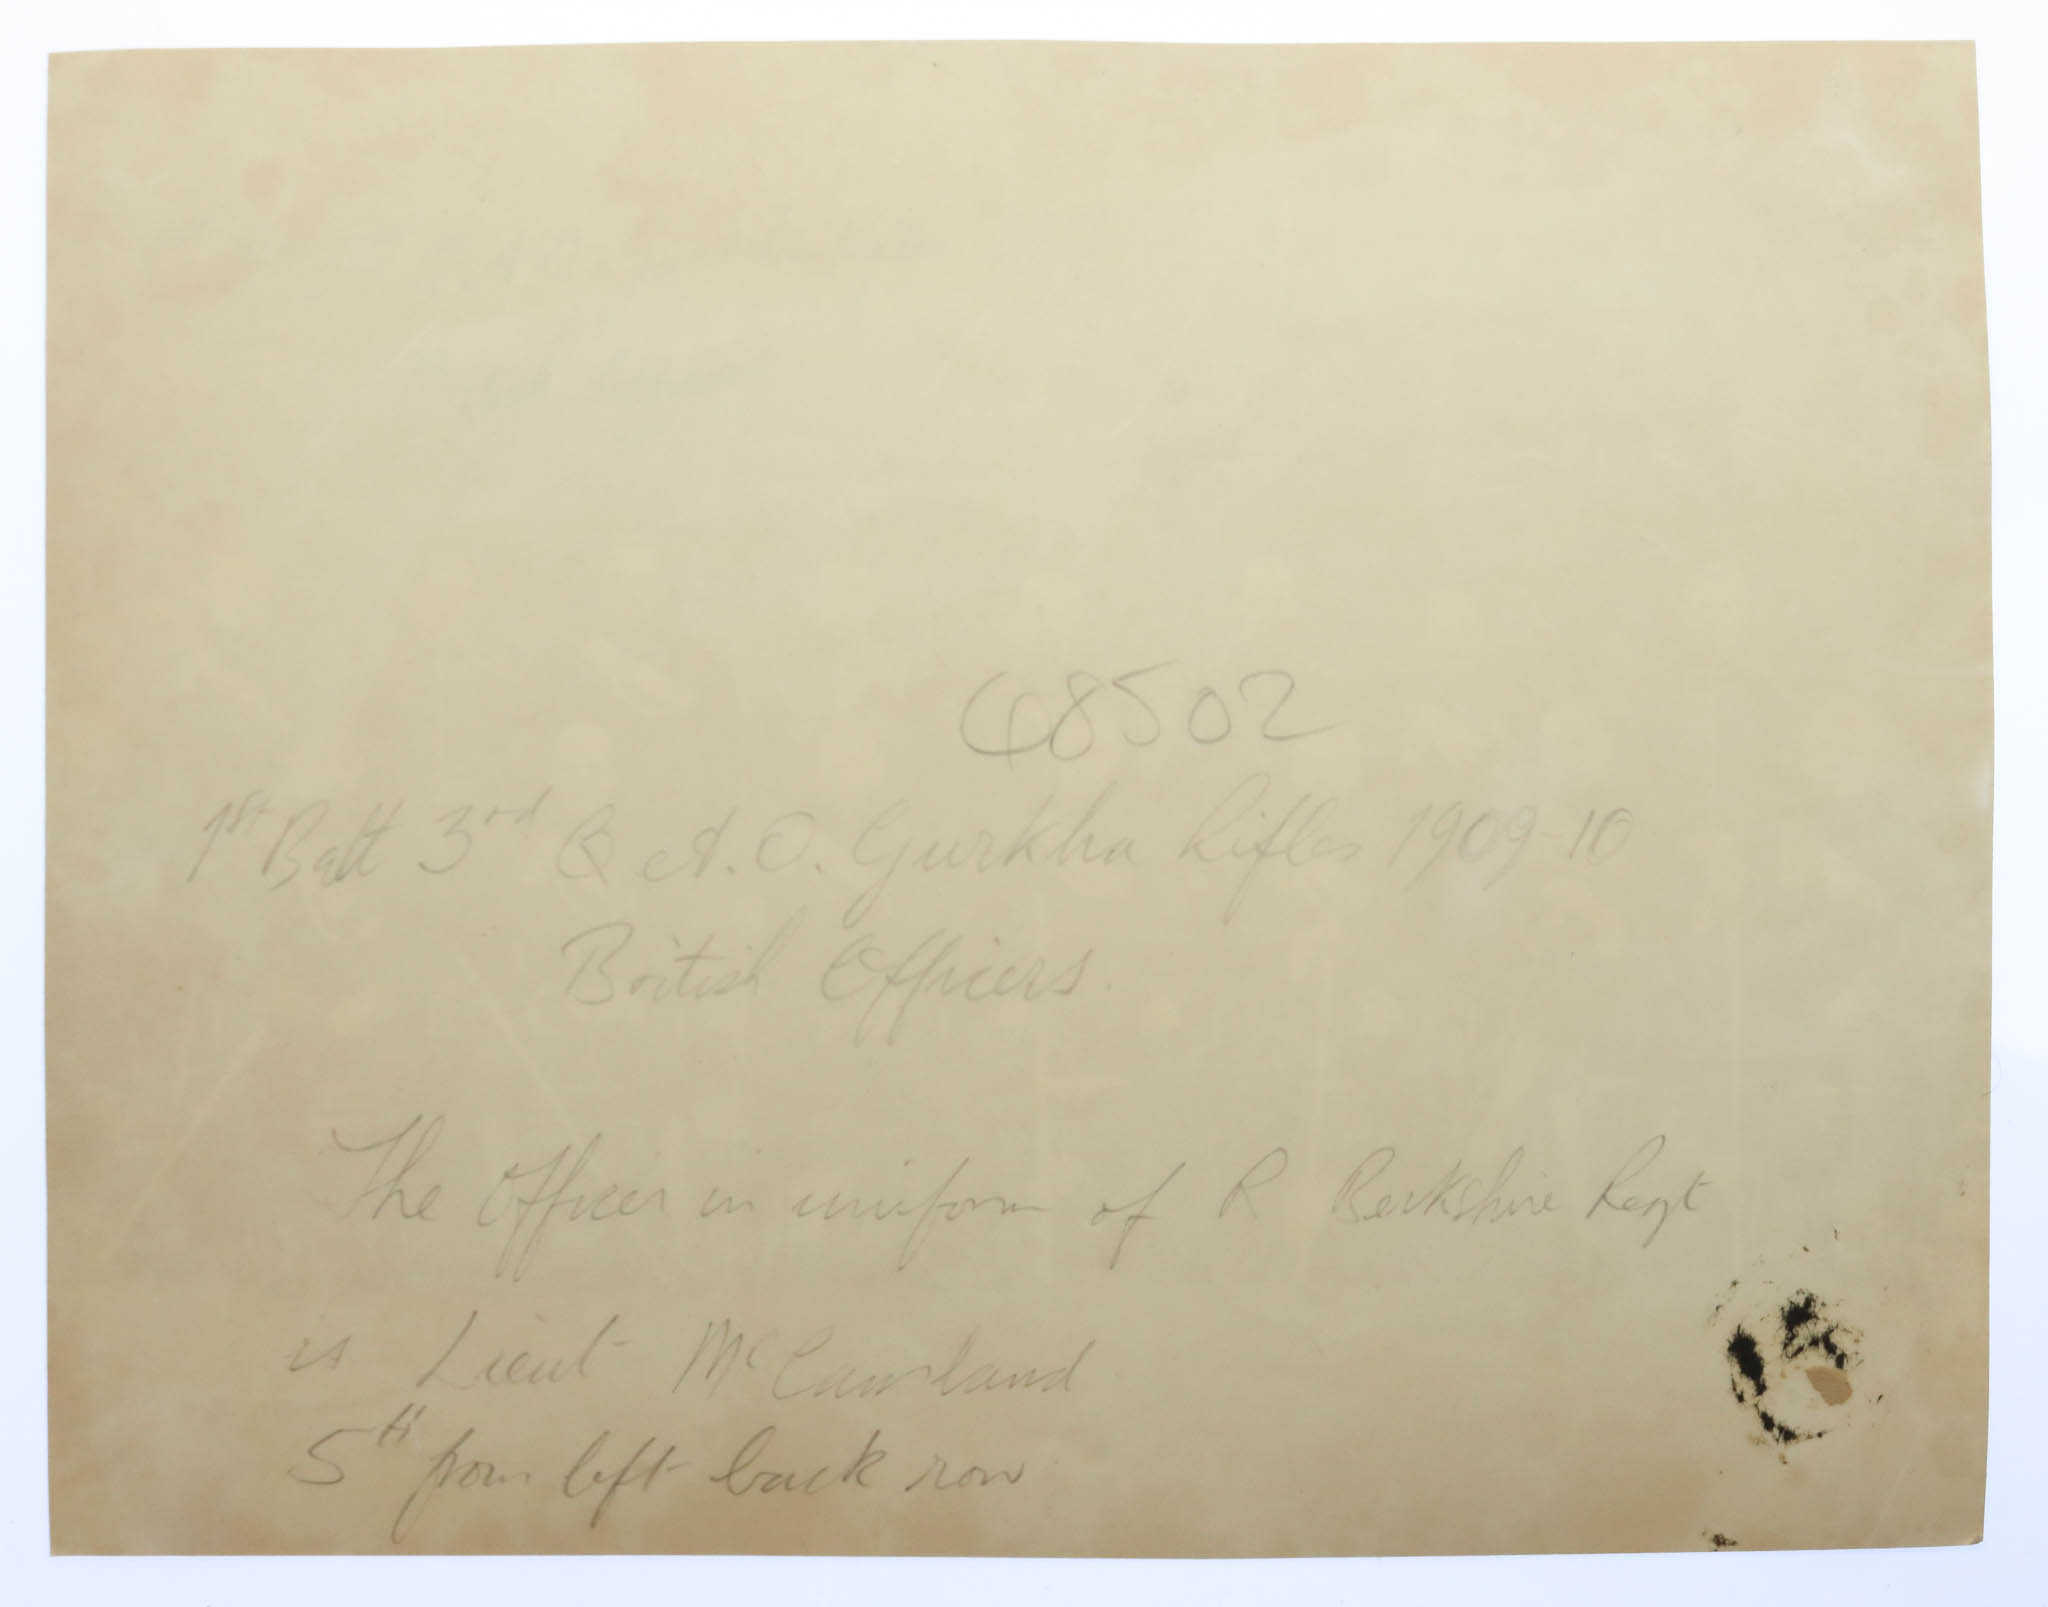 68502
1st Batt 3rd Q A.O. Gurkha Rifles 1909-10
British Officers.
The Officer in uniform of R Berkshire Regt
is Lieut McCausland
5th from left back row